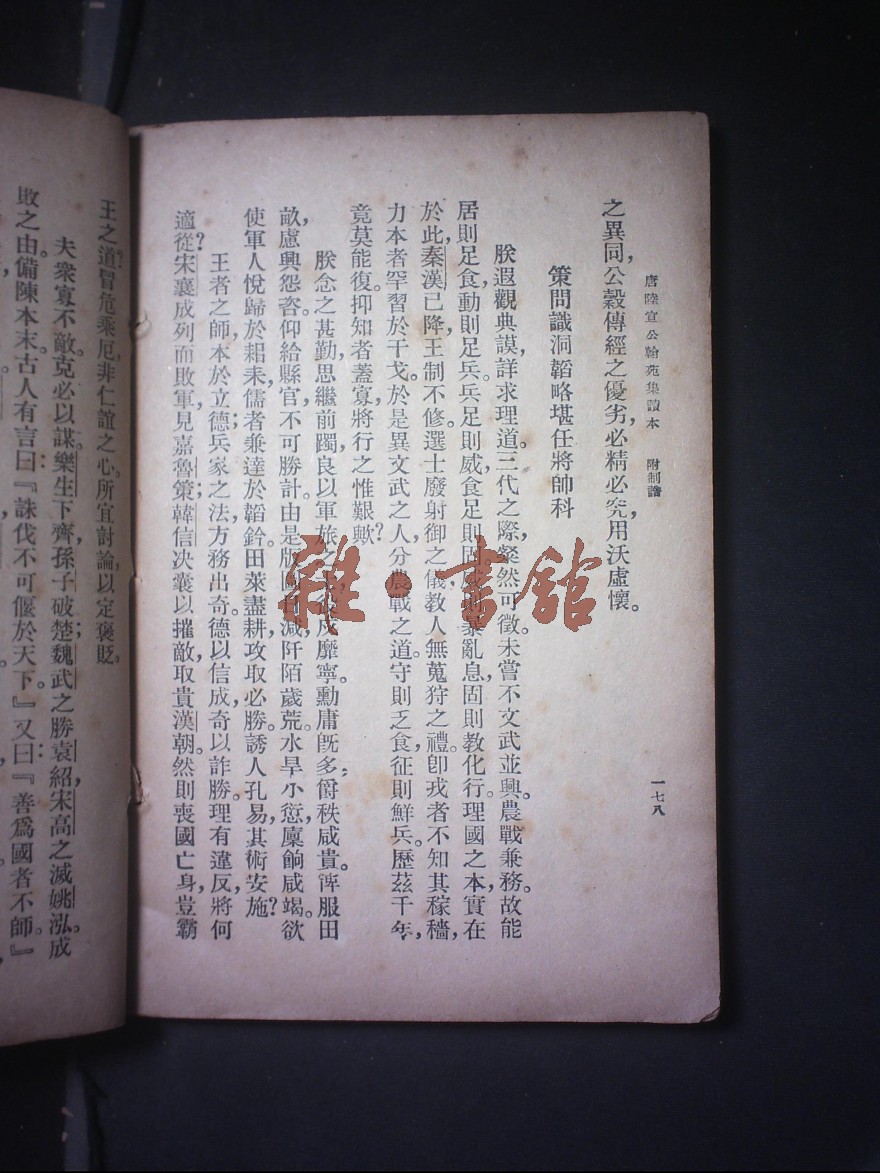 唐陸宣公翰苑集讀本　附制誥
一七八
之異同，公穀傳經之優劣，必精必究，用沃虛懷。
策問識洞韜略堪任將帥科
朕遐觀典謨，詳求理道。三代之際，粲然可徵，未嘗不文武並興，農戰兼務。故能
居則足食，動則足兵。兵足則威，食足則固。威則暴亂息，固則教化行。理國之本，實在
於此。秦漢已降，王制不修，選士廢射御之儀，教人無蒐狩之禮。卽戎者不知其稼穡，
力本者罕習於干戈。於是異文武之人，分農戰之道。守則乏食，征則鮮兵。歷茲千年，
竟莫能復。抑知者蓋寡，將行之惟艱歟？
朕念之甚勤，思繼前躅。良以軍旅之，戍靡寧。勳庸旣多，爵秩咸貴。俾服田
畝，慮興怨咨。仰給縣官，不可勝計。由是版圖日減，阡陌歲荒。水旱小愆，廩餉咸竭。欲
使軍人悅歸於耜耒，儒者兼達於韜鈐。田萊盡耕，攻取必勝。誘人孔易，其術安施？
王者之師，本於立德；兵家之法，方務出奇。德以信成，奇以詐勝。理有違反，將何
適從？宋襄成列而敗軍，見嘉魯策；韓信決囊以摧敵，取貴漢朝。然則喪國亡身，豈霸
王之道？冒危乘厄，非仁誼之心。所宜討論，以定褒貶。
夫衆寡不敵，克必以謀。樂生下齊，孫子破楚；魏武之勝袁紹，宋高之滅姚泓。成
敗之由，備陳本末。古人有言曰：『誅伐不可偃於天下。』又曰：『善爲國者不師。』
雜·書館